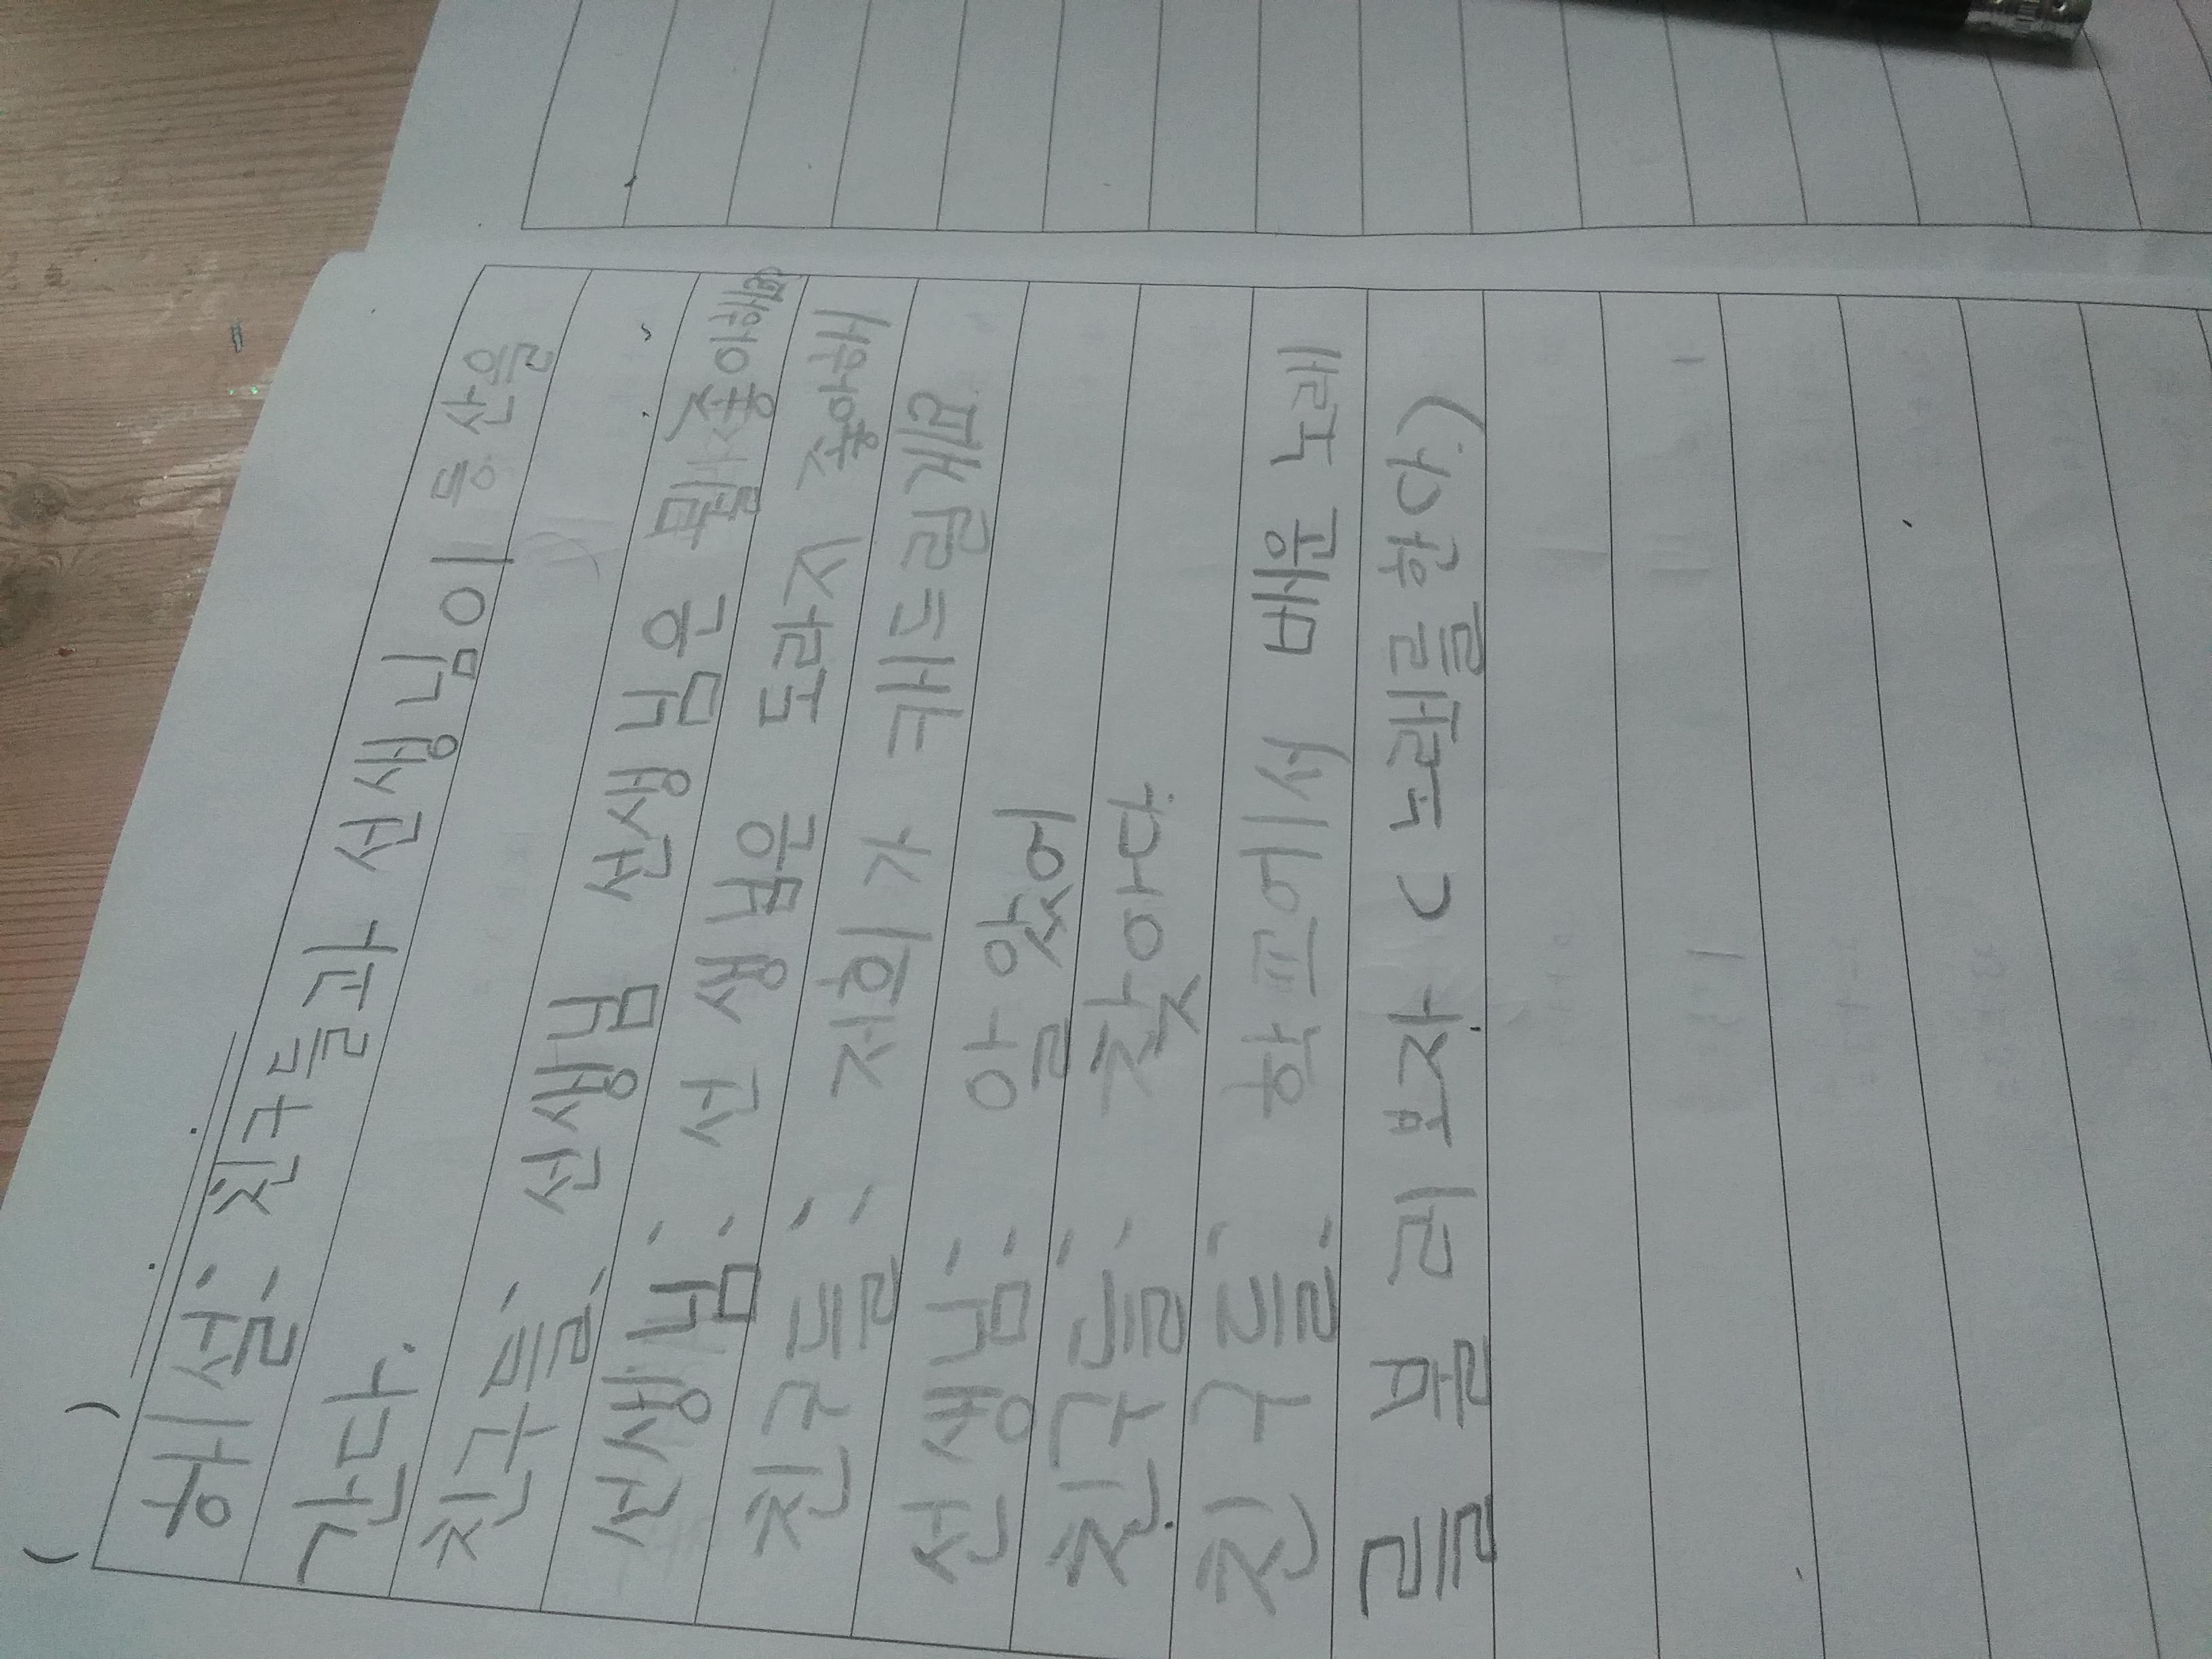 ( )
해설: 친구들과 선생님이 등산을
간다.
친구들: 선생님 선생님은 뭘 좋아해요
선생님: 선생님은 도라지 좋아해
친구들: 저희가 캐드릴게요.
선생님: 알았어
친구들: 찾아다.
친구들: 학교에서 배운 노래
를 불러보자 (노래를 한다.)